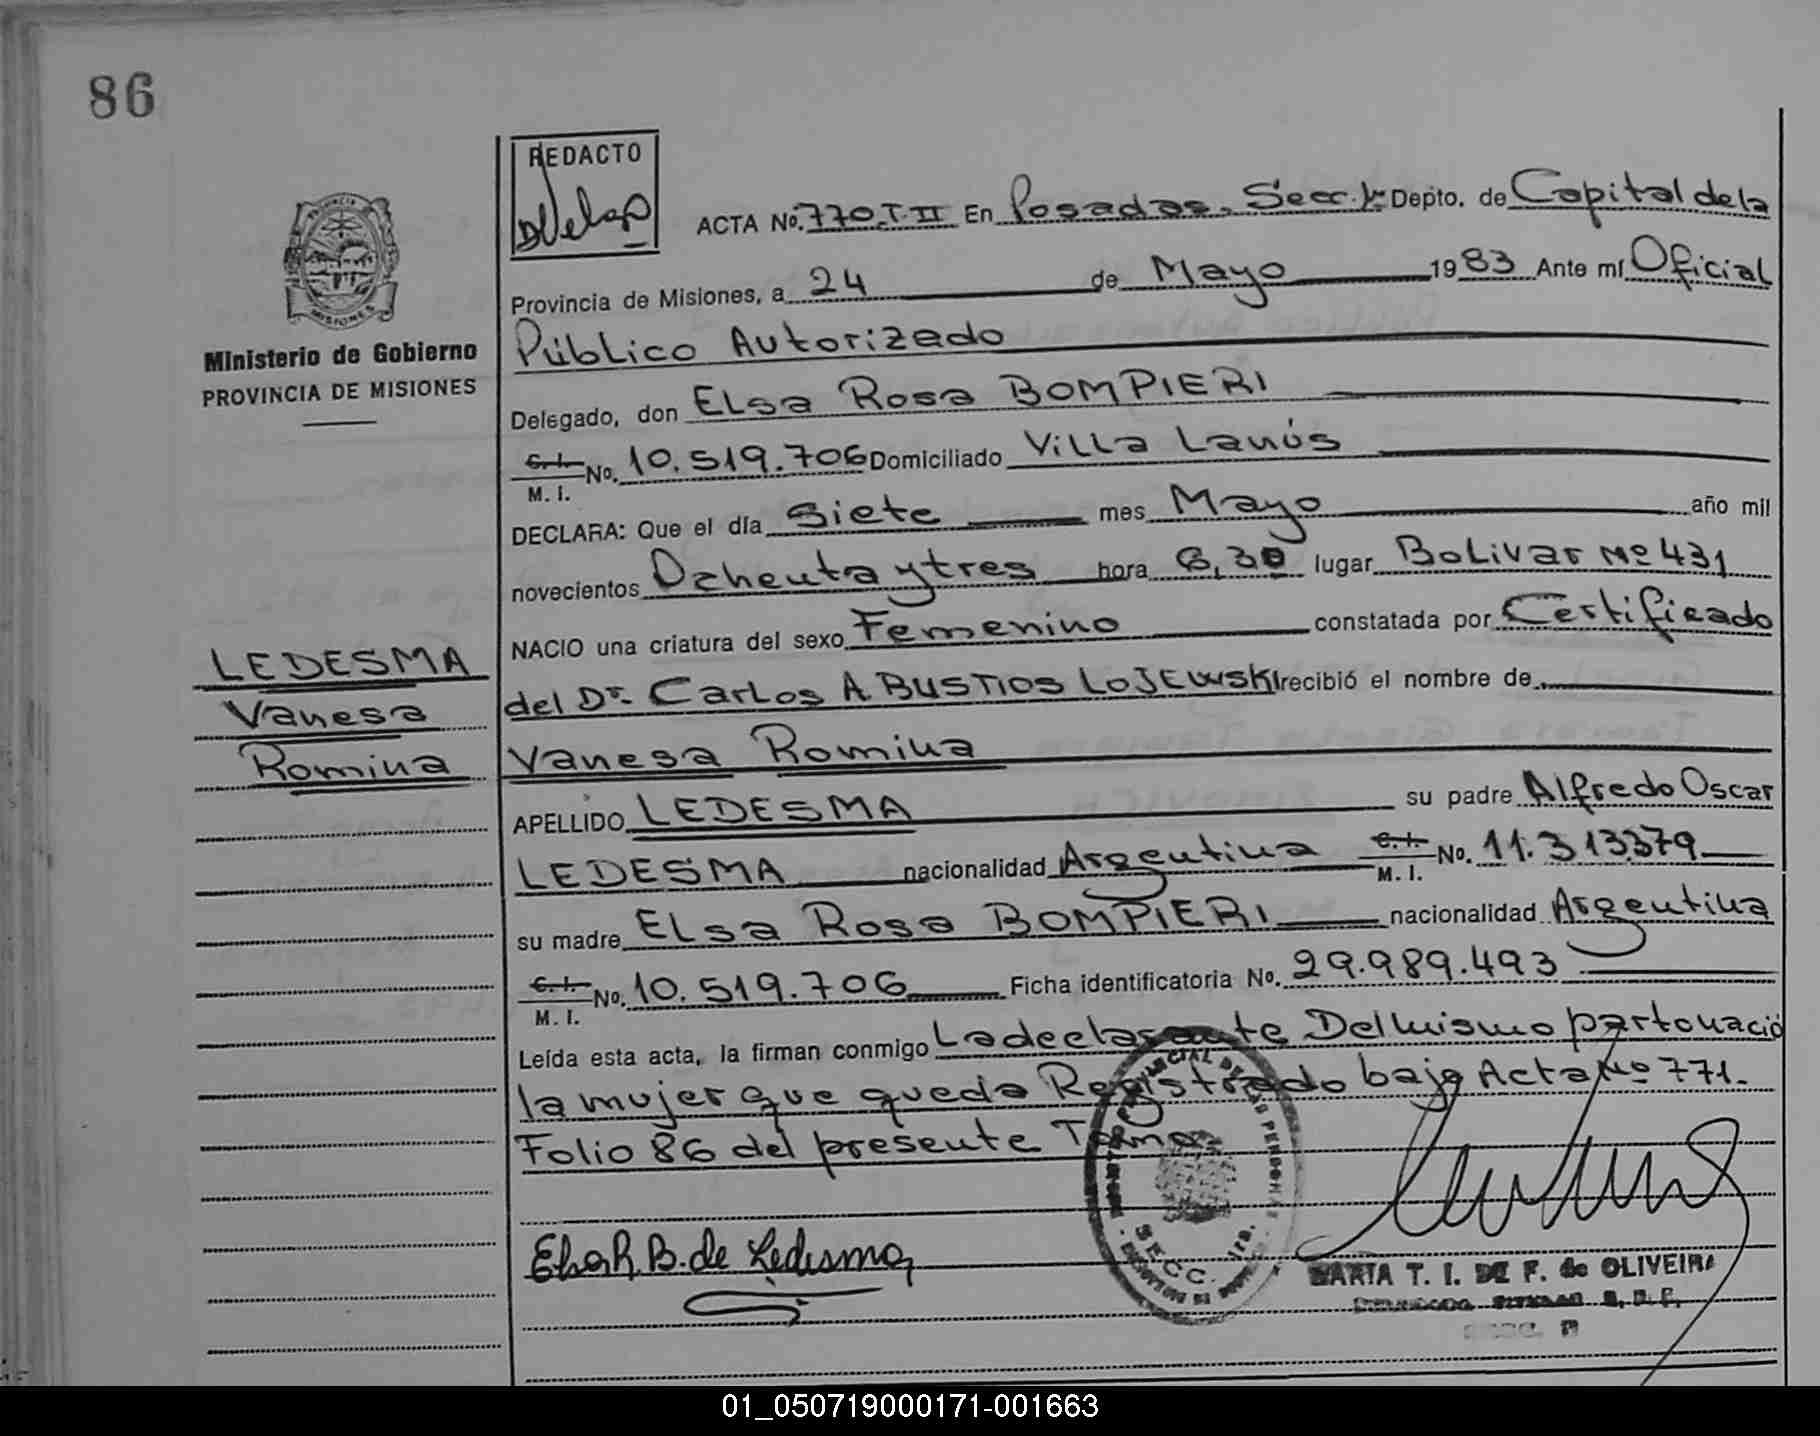 86
REDACTO
ACTA No. 770. T. II En Posadas, Secc. 1ª Depto. de Capital de la
Provincia de Misiones, a 24 de Mayo 1983 Ante mí Oficial
Público Autorizado
Delegado, don Elsa Rosa BOMPIERI
C. I.
M. I. No. 10.519.706 Domiciliado Villa Lanús
DECLARA: Que el día Siete mes Mayo año mil
novecientos Ochenta y tres hora 8,30 lugar Bolivar Nº 431
NACIO una criatura del sexo Femenino constatada por Certificado
del Dr. Carlos A BUSTIOS LOJEWSKI recibió el nombre de
Vanesa Romina
APELLIDO LEDESMA su padre Alfredo Oscar
LEDESMA nacionalidad Argentina C. I. M. I. No. 11.313.379
su madre Elsa Rosa BOMPIERI nacionalidad Argentina
C. I.
M. I. No. 10.519.706 Ficha identificatoria No. 29.989.493
Leída esta acta, la firman conmigo La declarante Del mismo parto nació
la mujer que queda Registrado bajo Acta Nº 771.
Folio 86 del presente Tomo
Elsa R. B. de Ledesma
PROVINCIA
MISIONES
Ministerio de Gobierno
PROVINCIA DE MISIONES
LEDESMA
Vanesa
Romina
SECC. 1ra.
MARTA T. I. DE F. de OLIVEIRA
01_050719000171-001663